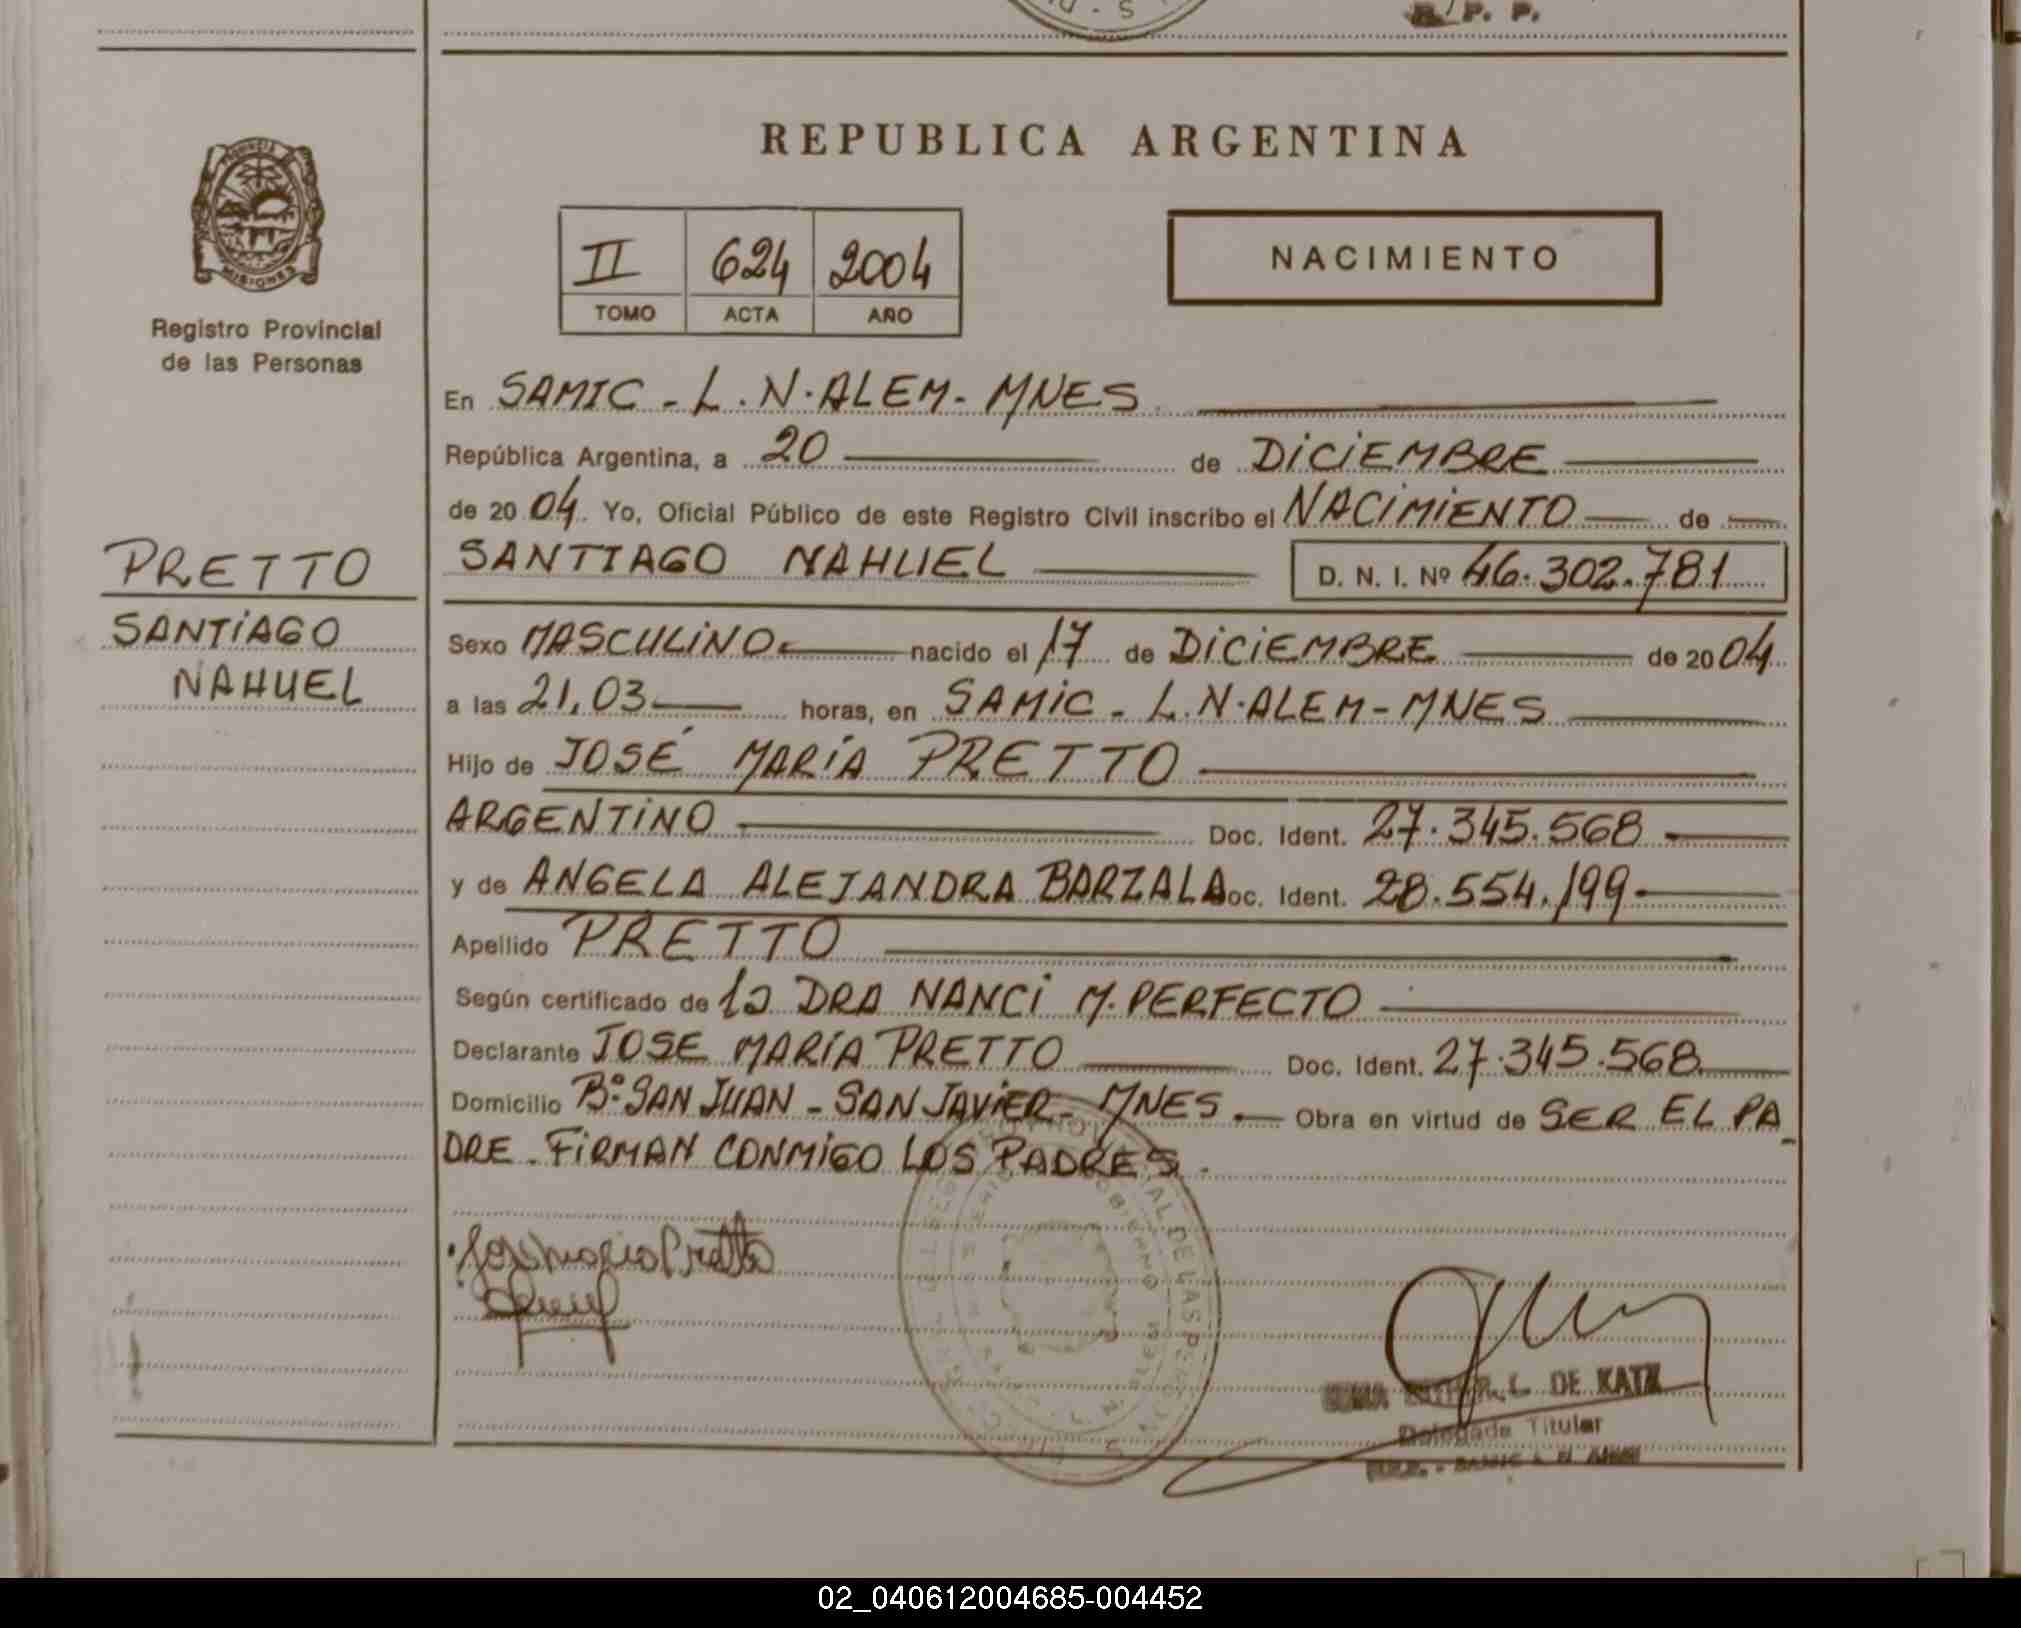 R. P. P.
REPUBLICA ARGENTINA
PROVINCIA DE
MISIONES
Registro Provincial
de las Personas
II 624 2004
TOMO ACTA AÑO
NACIMIENTO
En SAMIC - L. N. ALEM - MNES.
República Argentina, a 20 de DICIEMBRE
de 2004. Yo, Oficial Público de este Registro Civil inscribo el NACIMIENTO de
SANTIAGO NAHUEL D. N. I. Nº 46.302.781
PRETTO
SANTIAGO
NAHUEL
Sexo MASCULINO nacido el 17 de DICIEMBRE de 2004
a las 21,03 horas, en SAMIC - L.N. ALEM - MNES
Hijo de JOSÉ MARÍA PRETTO
ARGENTINO Doc. Ident. 27.345.568
y de ANGELA ALEJANDRA BARZALA Doc. Ident. 28.554.199
Apellido PRETTO
Según certificado de la DRA NANCI M. PERFECTO
Declarante JOSE MARÍA PRETTO Doc. Ident. 27.345.568
Domicilio Bº SAN JUAN - SAN JAVIER - MNES. Obra en virtud de SER EL PA_
DRE. FIRMAN CONMIGO LOS PADRES.
Jose maria Pretto
L. DE KATZ
Delegada Titular
SAMIC L N ALEM
02_040612004685-004452